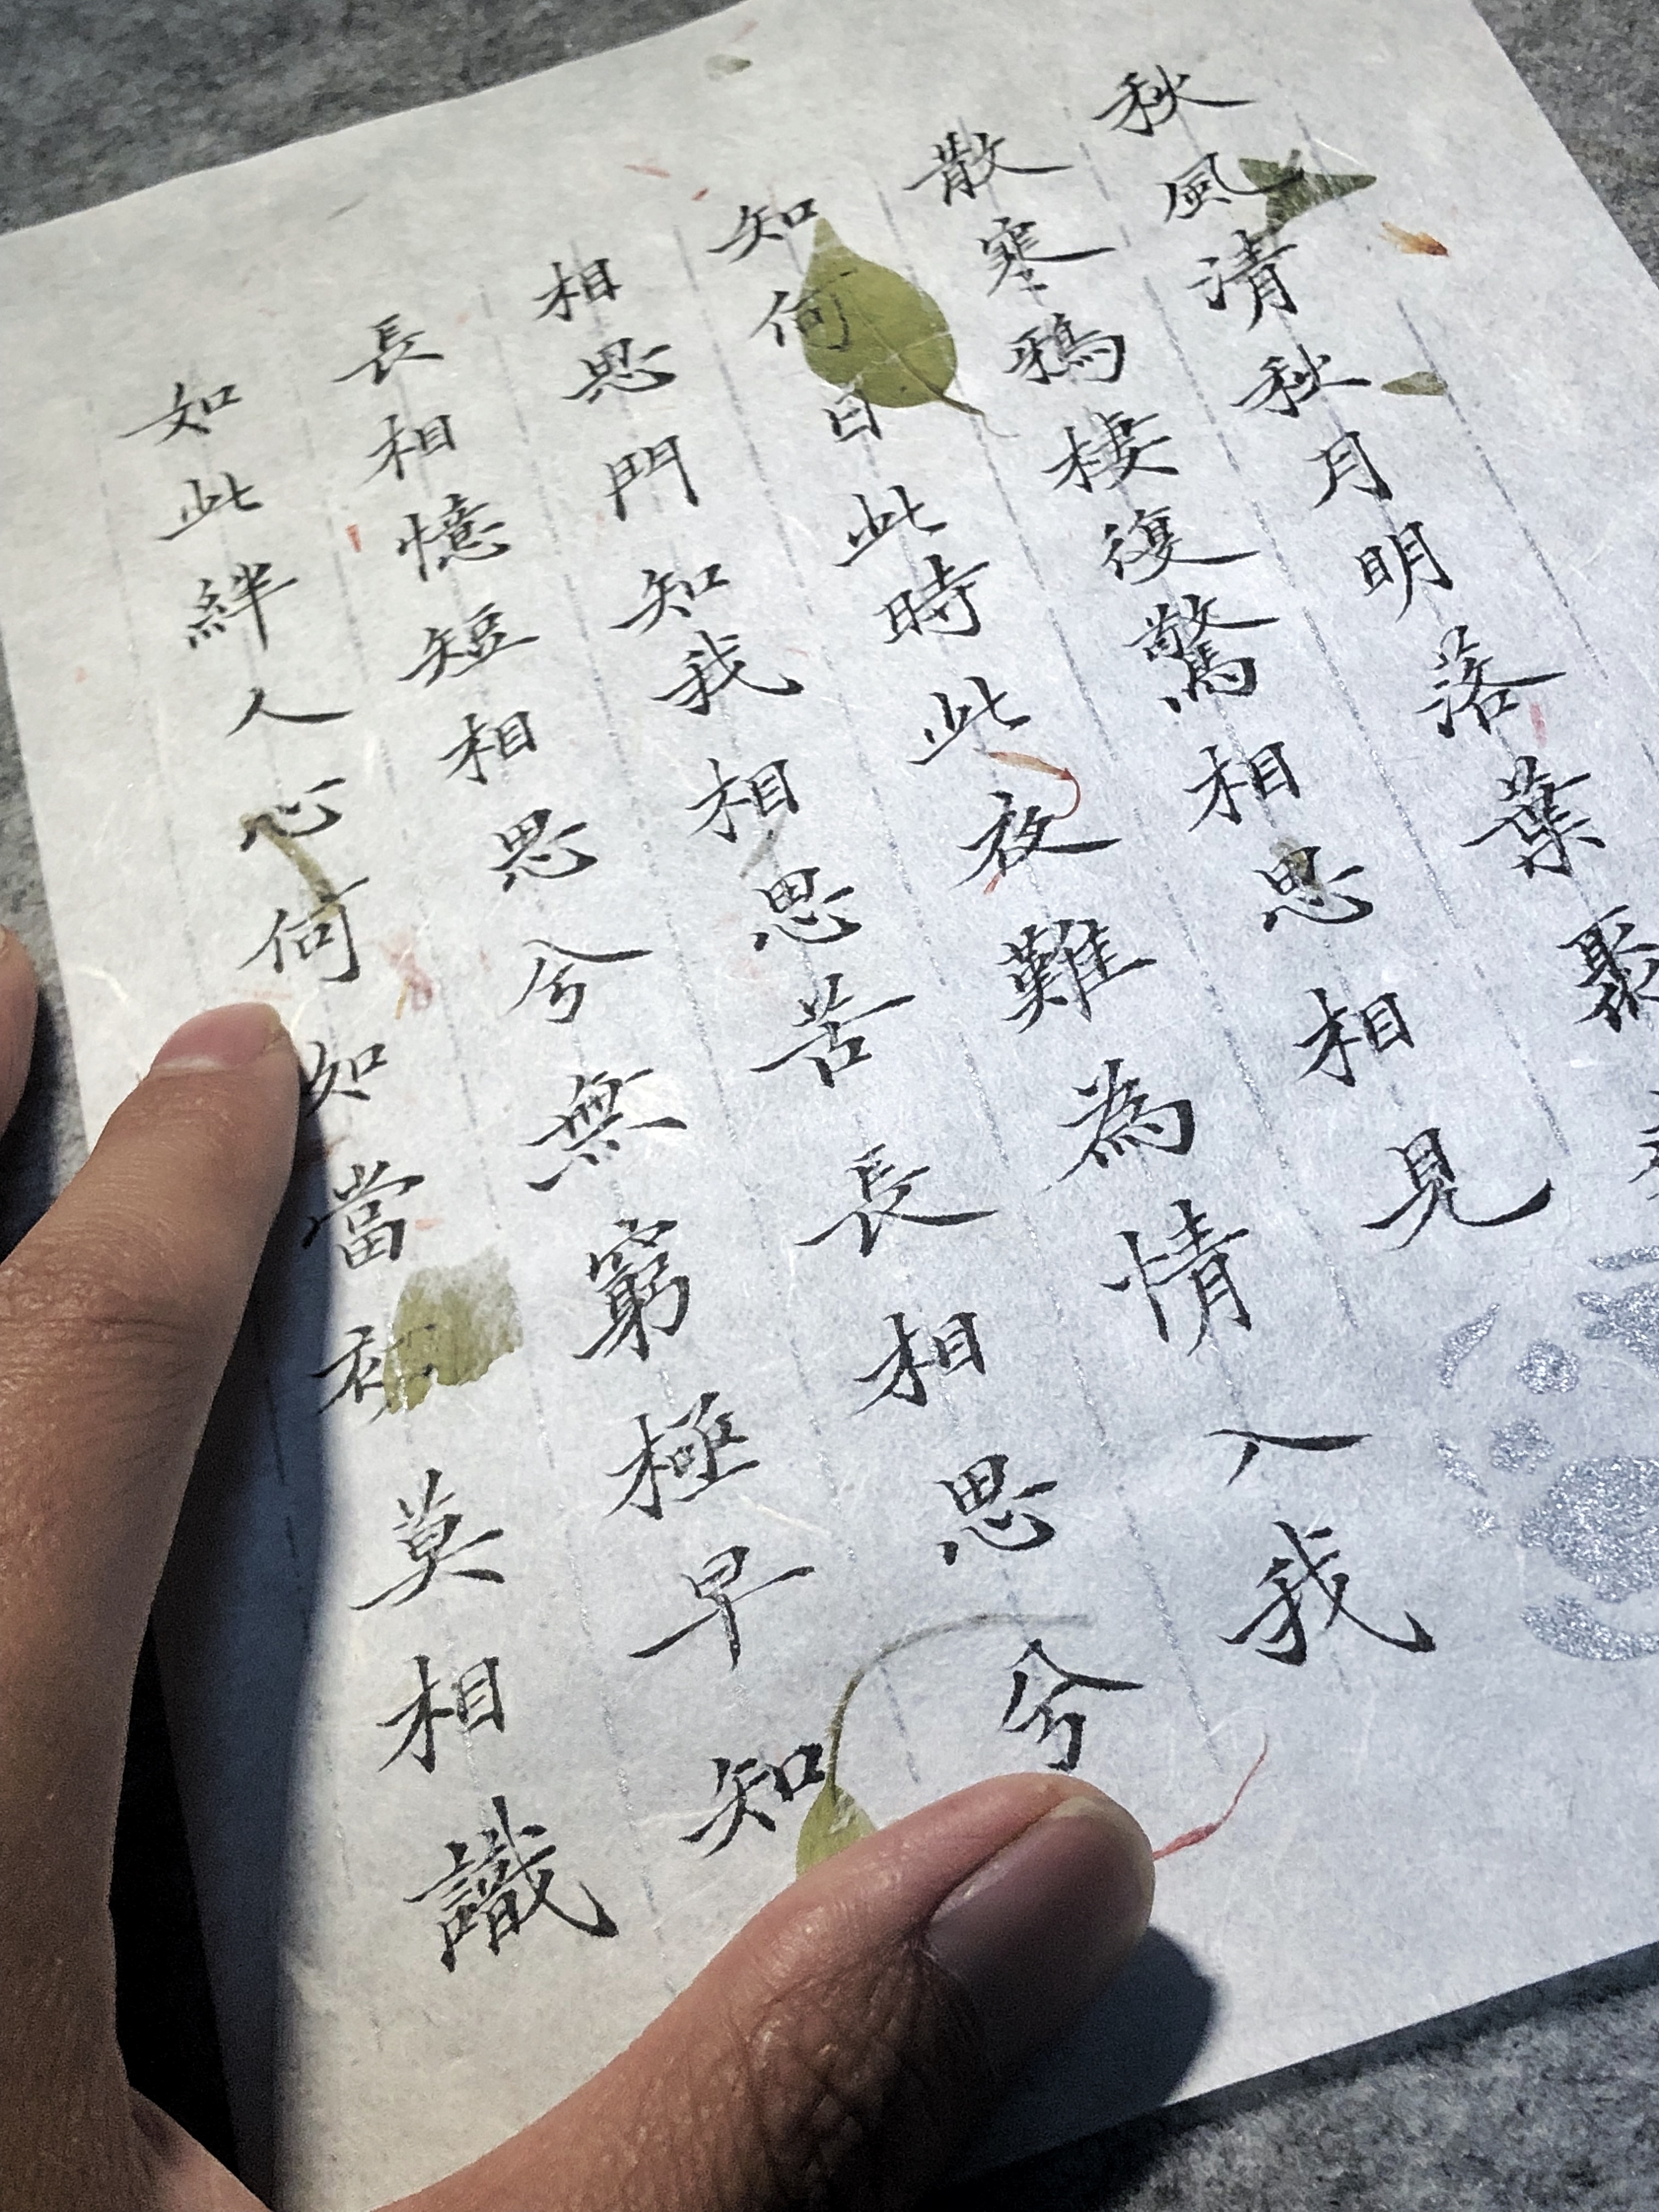 秋風清秋月明落葉聚
散寒鴉棲復驚相思相見
知何日此時此夜難為情入我
相思門知我相思苦長相思兮
長相憶短相思兮無窮極早知
如此絆人心何如當初莫相識